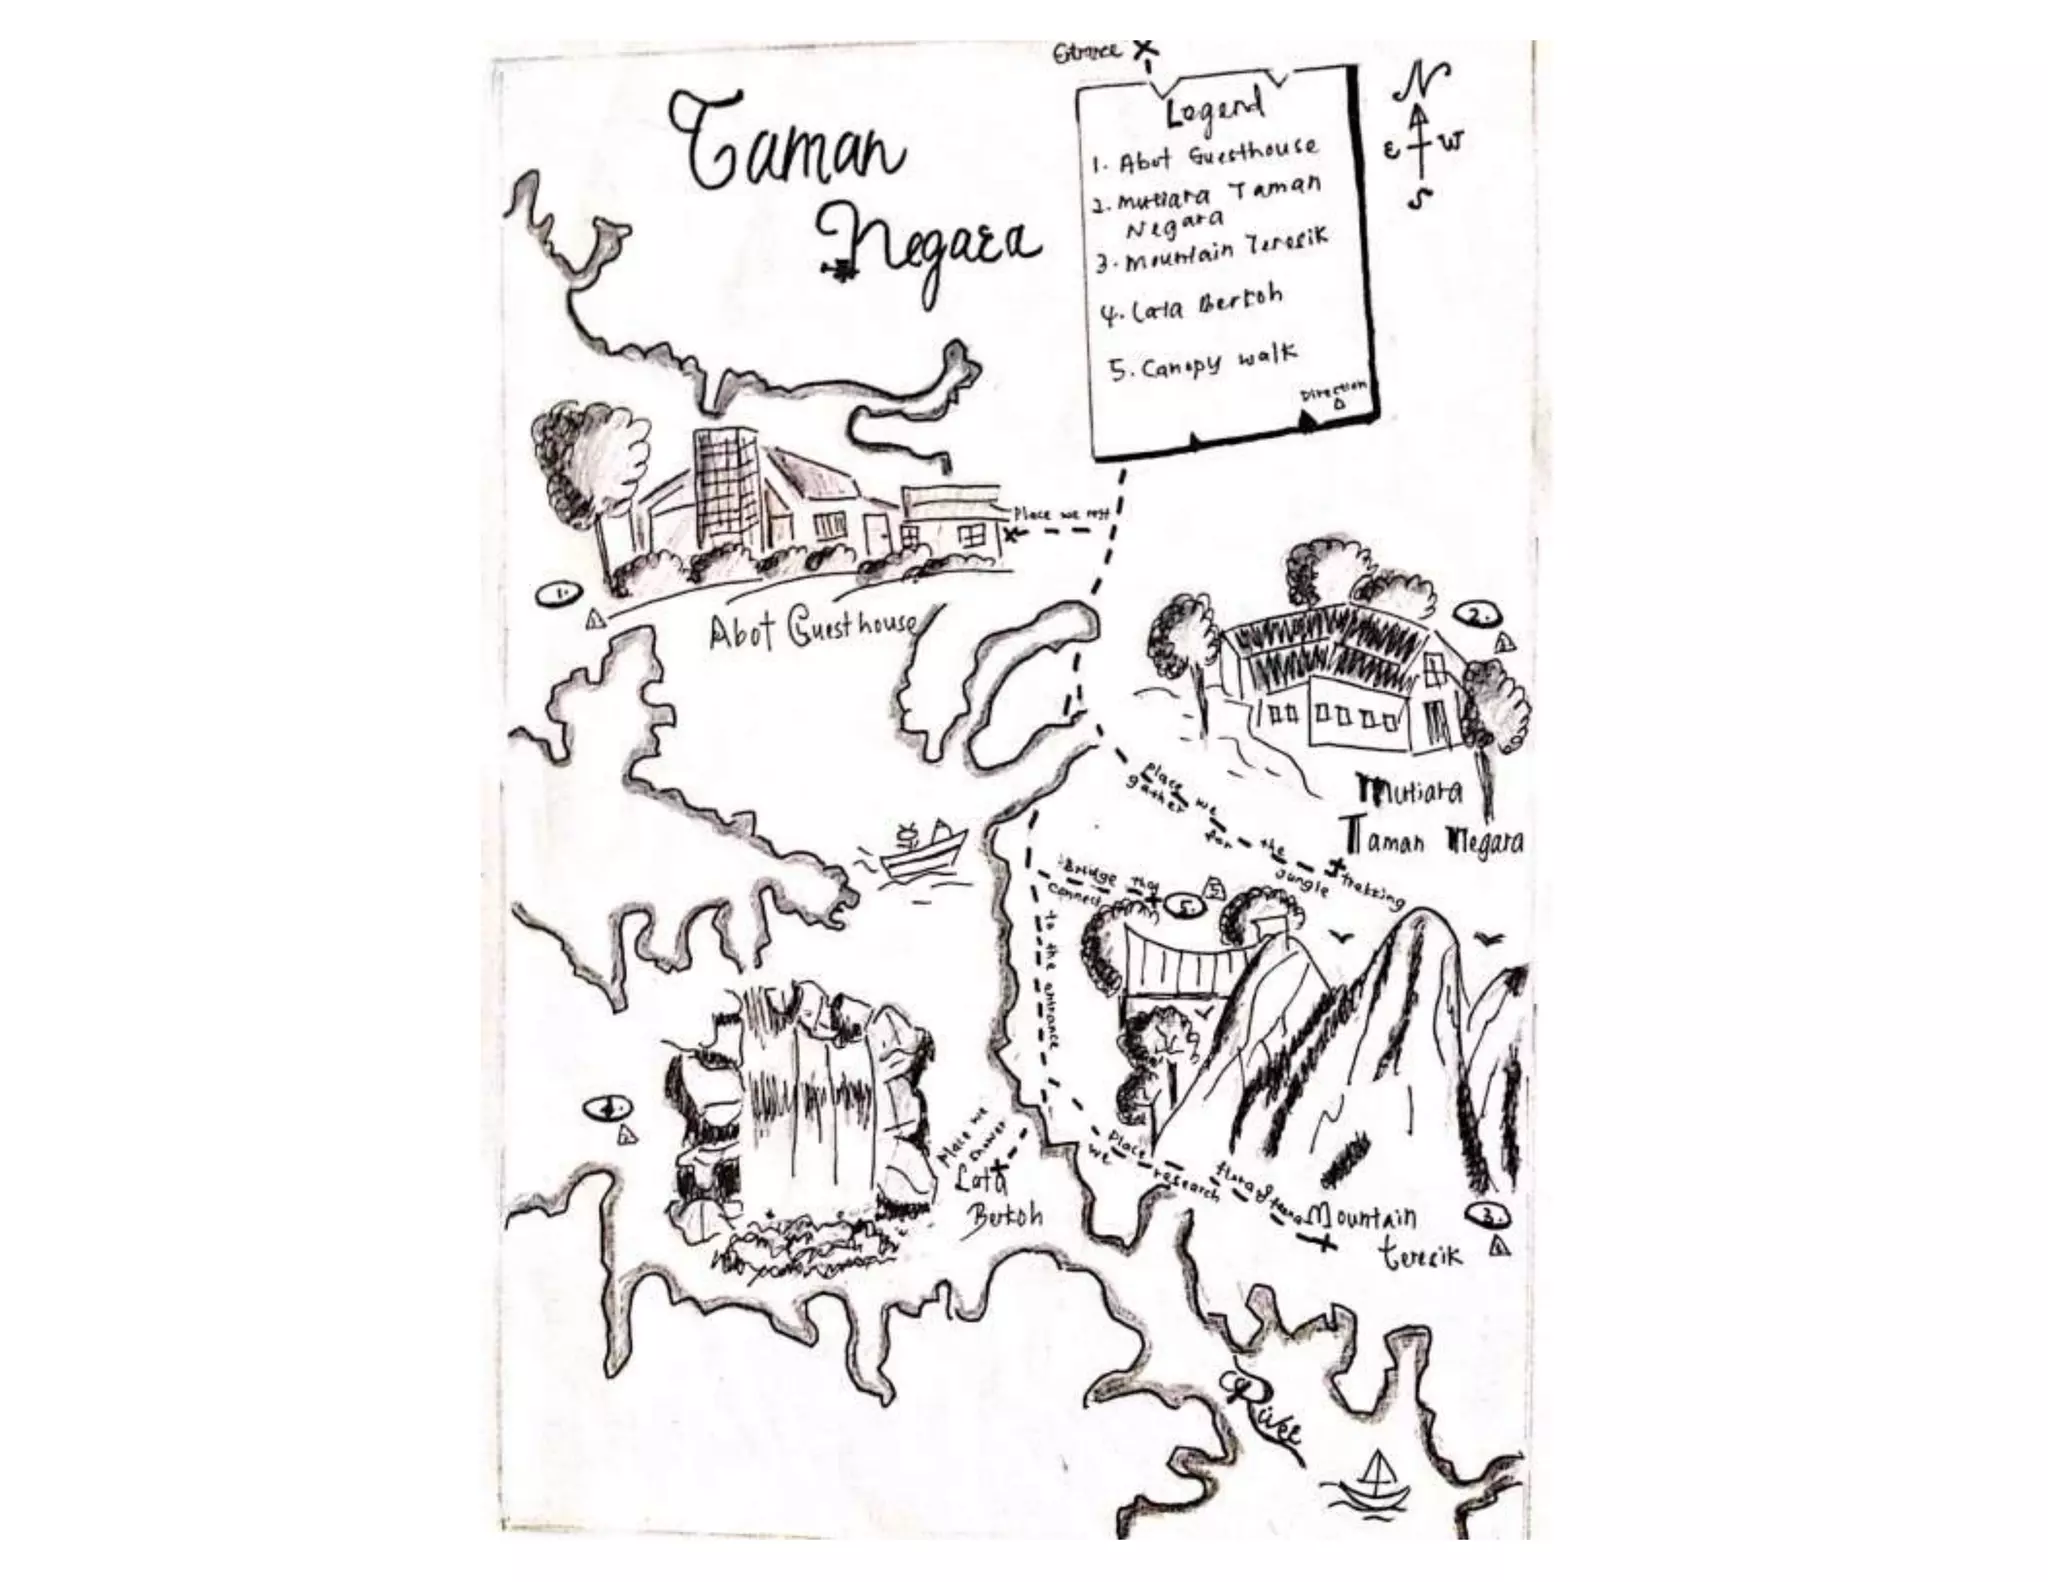 Entrance
Taman
Negara
Legend
1. Abot Guesthouse
2. Mutiara Taman
Negara
3. Mountain Teresik
4. Lata Berkoh
5. Canopy walk
Direction
N
E W
S
Place we rest
1.
1
Abot Guesthouse
2.
Mutiara
Taman Negara
Place we
gather for the
jungle trekking
Bridge that
connect
to the entrance
5.
5
4.
Place we
shower
Lata
Berkoh
Place
we research
flora & fauna
Mountain
teresik
3.
River